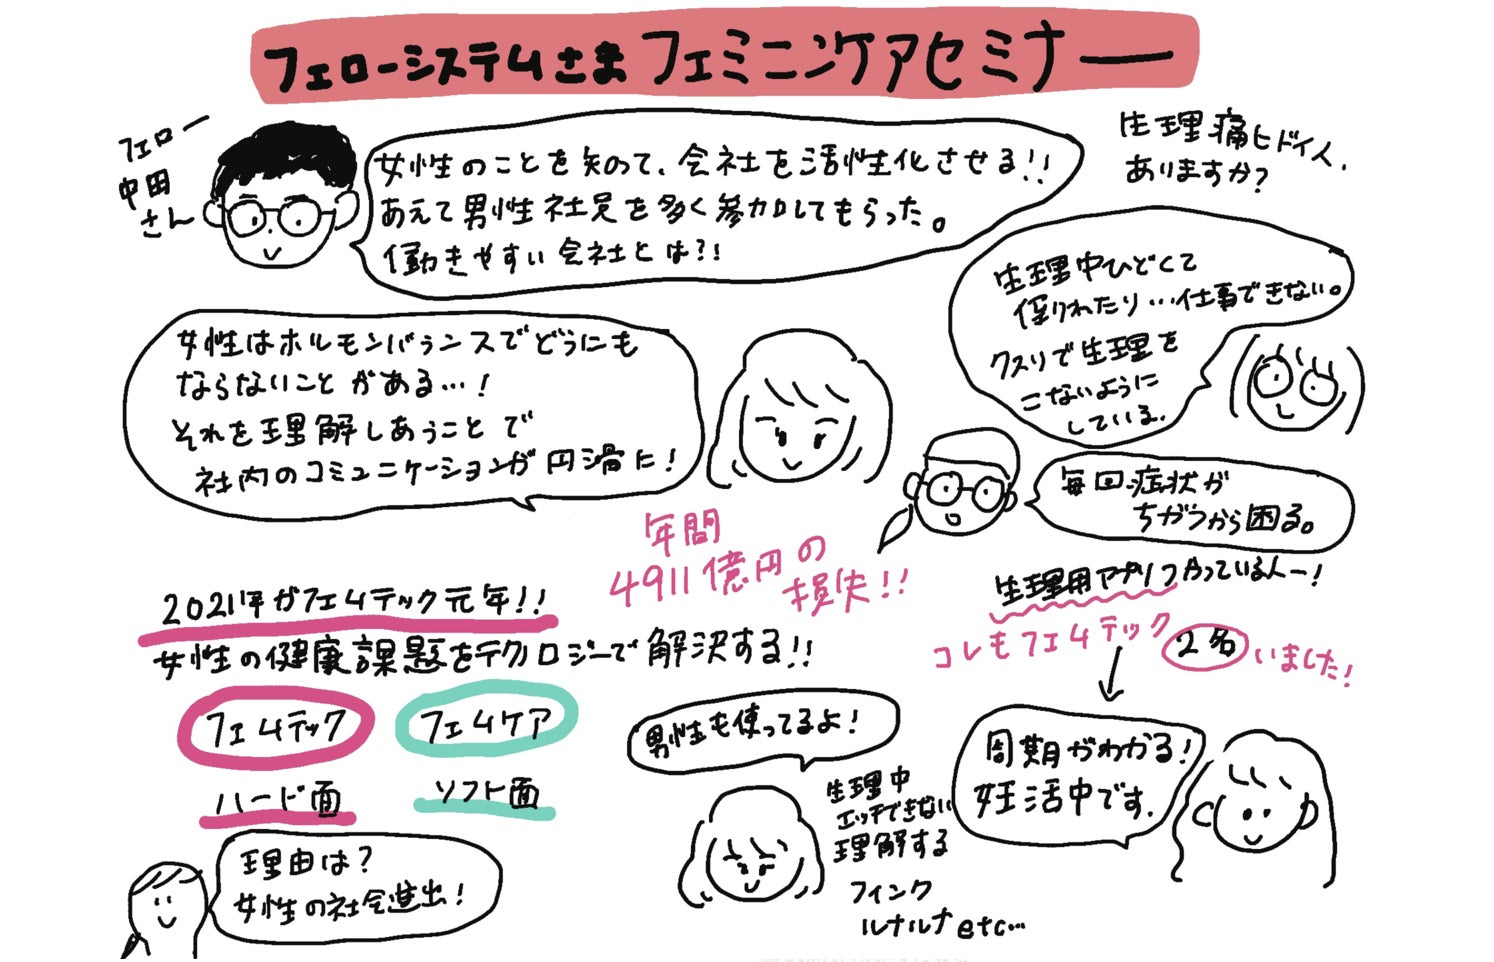 フェローシステムさま フェミニンケアセミナー
フェロー
中田
さん
女性のことを知って、会社を活性化させる!!
あえて男性社員を多く参加してもらった。
働きやすい会社とは?!
生理痛ヒドイ人、
ありますか?
生理中ひどくて
倒れたり…仕事できない。
クスリで生理を
こないように
している.
女性はホルモンバランスでどうにも
ならないことがある…!
それを理解しあうことで
社内のコミュニケーションが円滑に!
毎回症状が
ちがうから困る。
年間
4911億円の
損失!!
2021年がフェムテック元年!!
女性の健康課題をテクノロジーで解決する!!
フェムテック
フェムケア
ハード面
ソフト面
理由は?
女性の社会進出!
生理用アプリつかっている人ー!
コレもフェムテック
2名
いました!
男性も使ってるよ!
生理中
エッチできない
理解する
フィンク
ルナルナetc…
周期がわかる!
妊活中です.